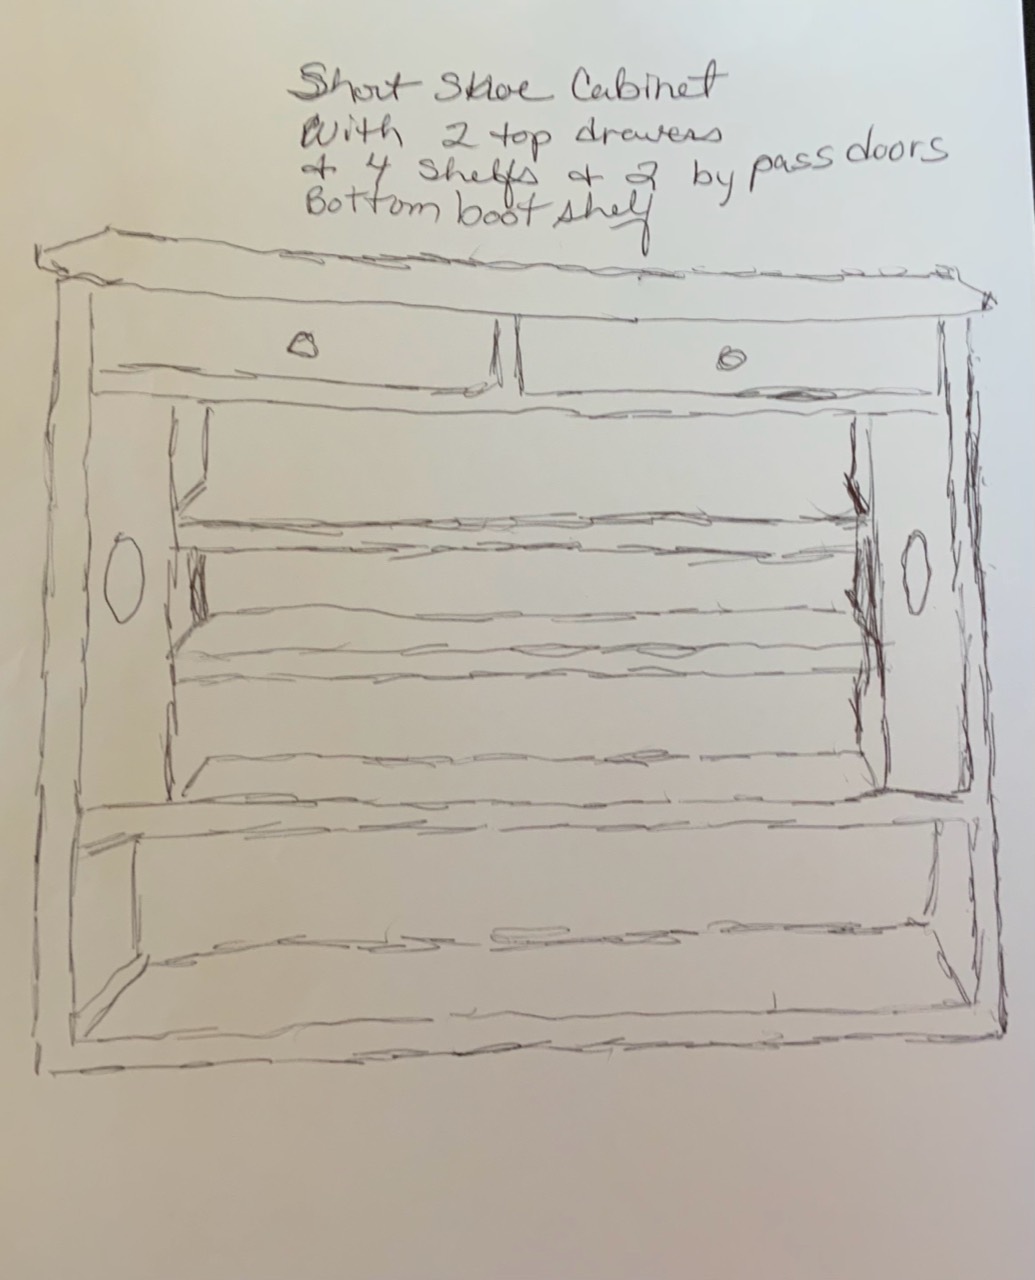 Short Shoe Cabinet
With 2 top drawers
+ 4 Shelfs + 2 by pass doors
Bottom boot shelf